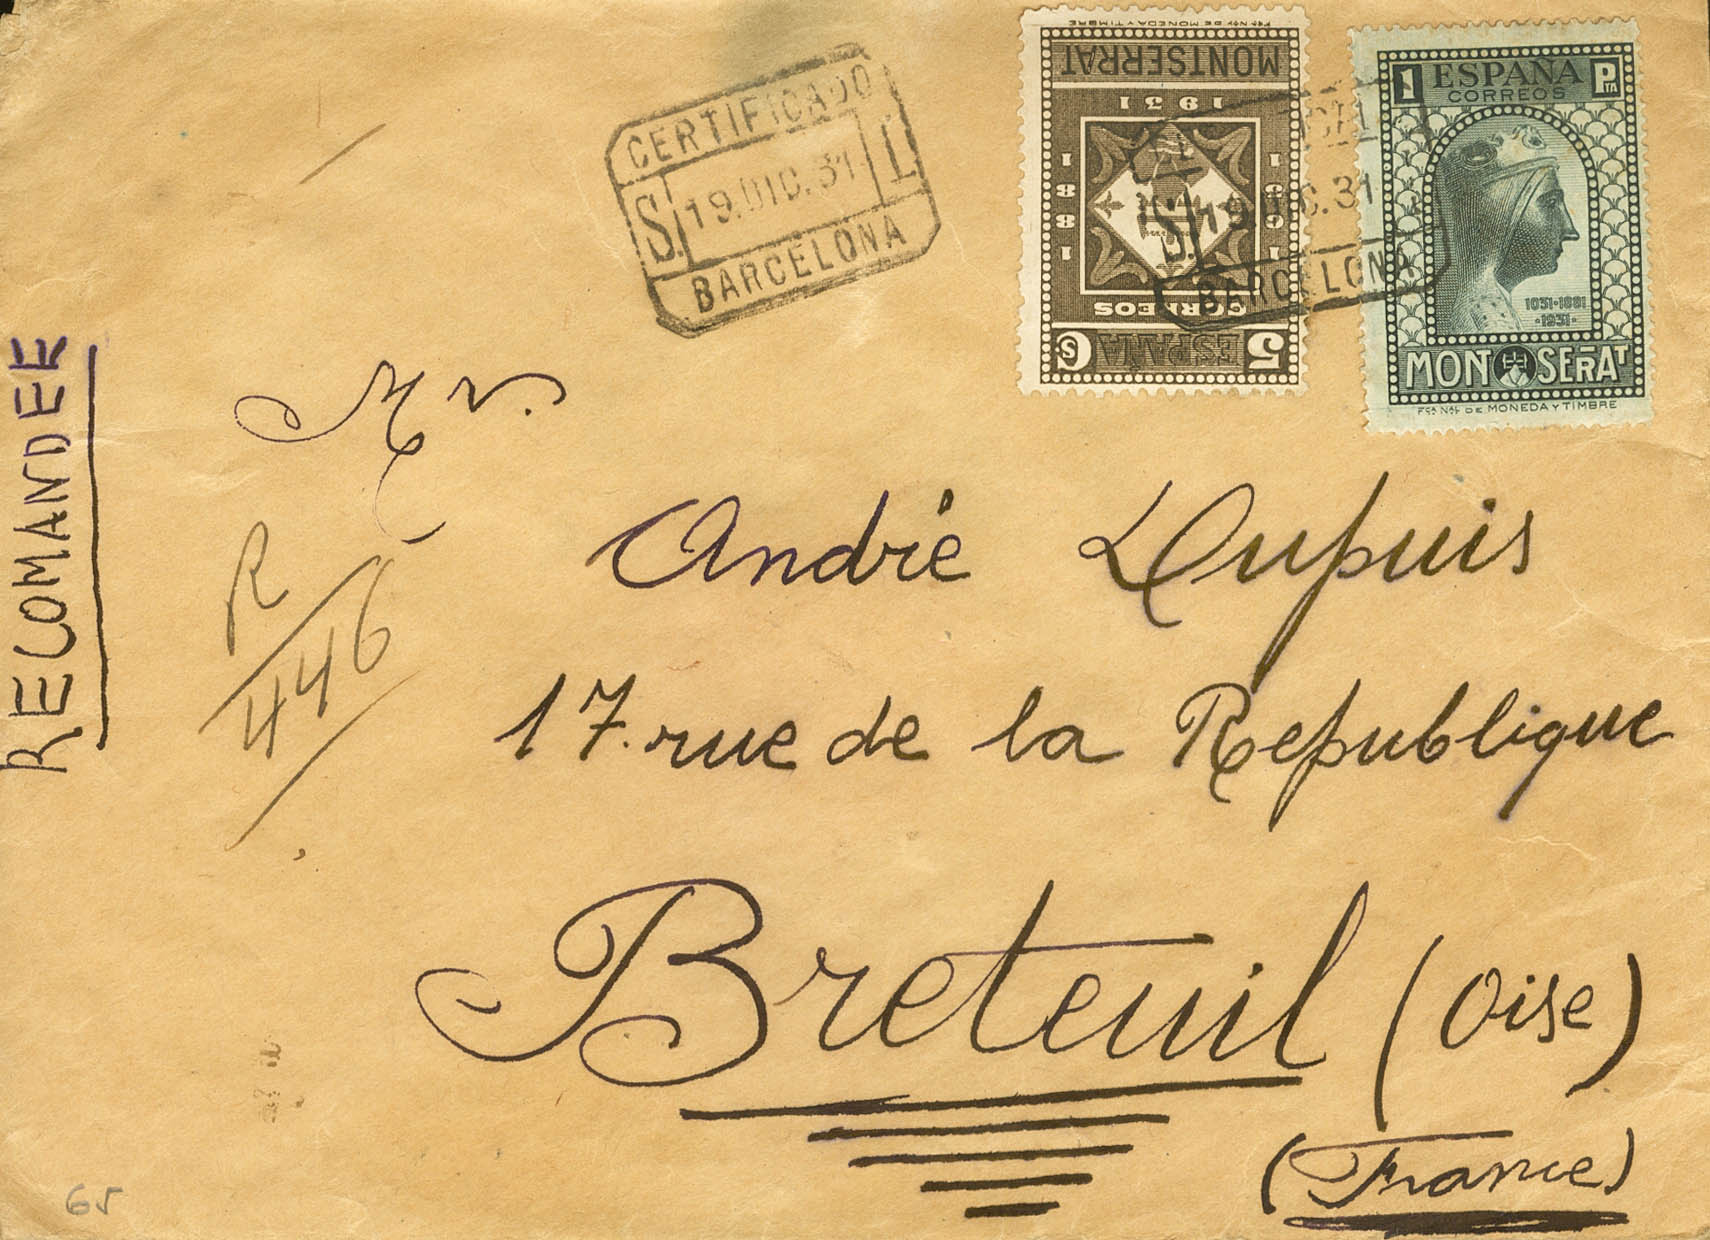 CERTIFICADO
S. 19.DIC.31 L
BARCELONA
Fca Nal DE MONEDA Y TIMBRE
MONTSERRAT
1931
1881
1931
CORREOS
5 ESPAÑA Cs
19.DIC.31
S.
BARCELONA
1 ESPAÑA PTA
CORREOS
1031-1881
-1931-
MONTSERRAT
Fca Nal DE MONEDA Y TIMBRE
RECOMANDEE
Mr.
André Dupuis
R
446
17. rue de la Republique
Breteuil (Oise)
(France)
65